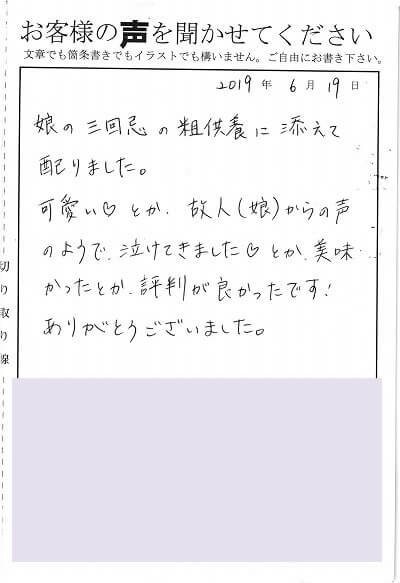 お客様の声を聞かせてください
文章でも箇条書きでもイラストでも構いません。ご自由にお書き下さい。
2019年 6月 19日
娘の三回忌の粗供養に添えて
配りました。
可愛い♡とか、故人(娘)からの声
のようで、泣けてきました♡とか、美味
かったとか、評判が良かったです!
ありがとうございました。
切り取り線